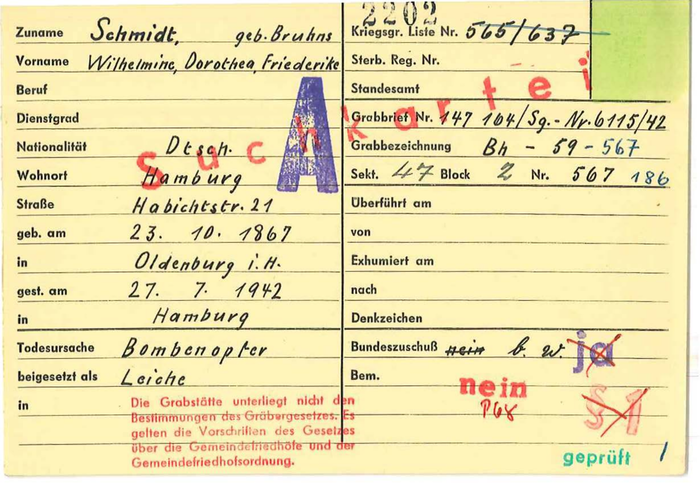 Zuname Schmidt, geb. Bruhns
Vorname Wilhelmine, Dorothea, Friederike
Beruf
Dienstgrad
Nationalität Dtsch.
Wohnort Hamburg
Straße Habichtstr. 21
geb. am 23. 10. 1867
in Oldenburg i. H.
gest. am 27. 7. 1942
in Hamburg
Todesursache Bombenopfer
beigesetzt als Leiche
in
Die Grabstätte unterliegt nicht den
Bestimmungen des Gräbergesetzes. Es
gelten die Vorschriften des Gesetzes
über die Gemeindefriedhöfe und der
Gemeindefriedhofsordnung.
A
Suchkartei
2202
Kriegsgr. Liste Nr. 565/637
Sterb. Reg. Nr.
Standesamt
Grabbrief Nr. 147 164/Sg.-Nr. 6115/42
Grabbezeichnung Bh - 59 - 567
Sekt. 47 Block 2 Nr. 567 186
Überführt am
von
Exhumiert am
nach
Denkzeichen
Bundeszuschuß nein b. w. ja
Bem.
nein
geprüft 1